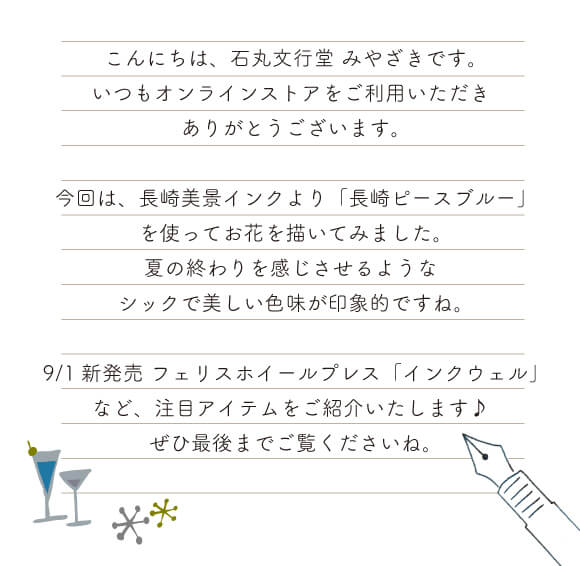 こんにちは、石丸文行堂 みやざきです。
いつもオンラインストアをご利用いただき
ありがとうございます。
今回は、長崎美景インクより「長崎ピースブルー」
を使ってお花を描いてみました。
夏の終わりを感じさせるような
シックで美しい色味が印象的ですね。
9/1 新発売 フェリスホイールプレス「インクウェル」
など、注目アイテムをご紹介いたします♪
ぜひ最後までご覧くださいね。